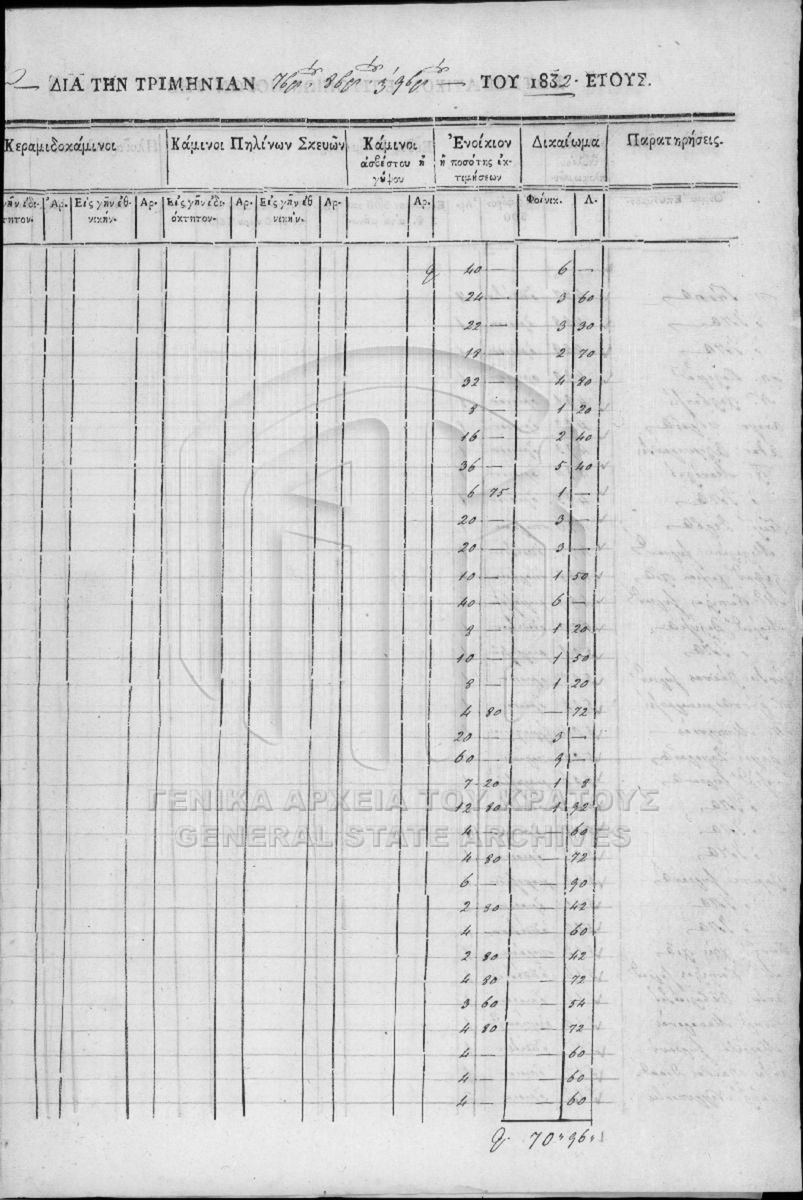 ΔΙΑ ΤΗΝ ΤΡΙΜΗΝΙΑΝ 7βρί 8βρί 9βρί ΤΟΥ 1832 · ΕΤΟΥΣ.
Κεραμιδοκάμινοι Κάμινοι Πηλίνων Σκευῶν Κάμινοι ἀσβέστου ἢ γύψου Ἐνοίκιον ἢ ποσότης ἐκτιμήσεων Δικαίωμα Παρατηρήσεις.
Ἀρ. Εἰς γῆν ἐθνικήν. Αρ. Εἰς γῆν ἰδιόκτητον. Αρ. Εἰς γῆν ἐθνικήν. Αρ. Αρ. Φοίνικ. Λ.
40 — 6 —
24 — 3 60
22 — 3 30
18 — 2 70
32 — 4 80
8 — 1 20
16 — 2 40
36 — 5 40
6 75 1 —
20 — 3 —
20 — 3 —
10 — 1 50
40 — 6 —
8 — 1 20
10 — 1 50
8 — 1 20
4 80 — 72
20 — 3 —
60 — 9 —
7 20 1 8
12 80 1 92
4 — — 60
4 80 — 72
6 — — 90
2 80 — 42
4 — — 60
2 80 — 42
4 80 — 72
3 60 — 54
4 80 — 72
4 — — 60
4 — — 60
4 — — 60
70 " 96 "
ΓΕΝΙΚΑ ΑΡΧΕΙΑ ΤΟΥ ΚΡΑΤΟΥΣ
GENERAL STATE ARCHIVES